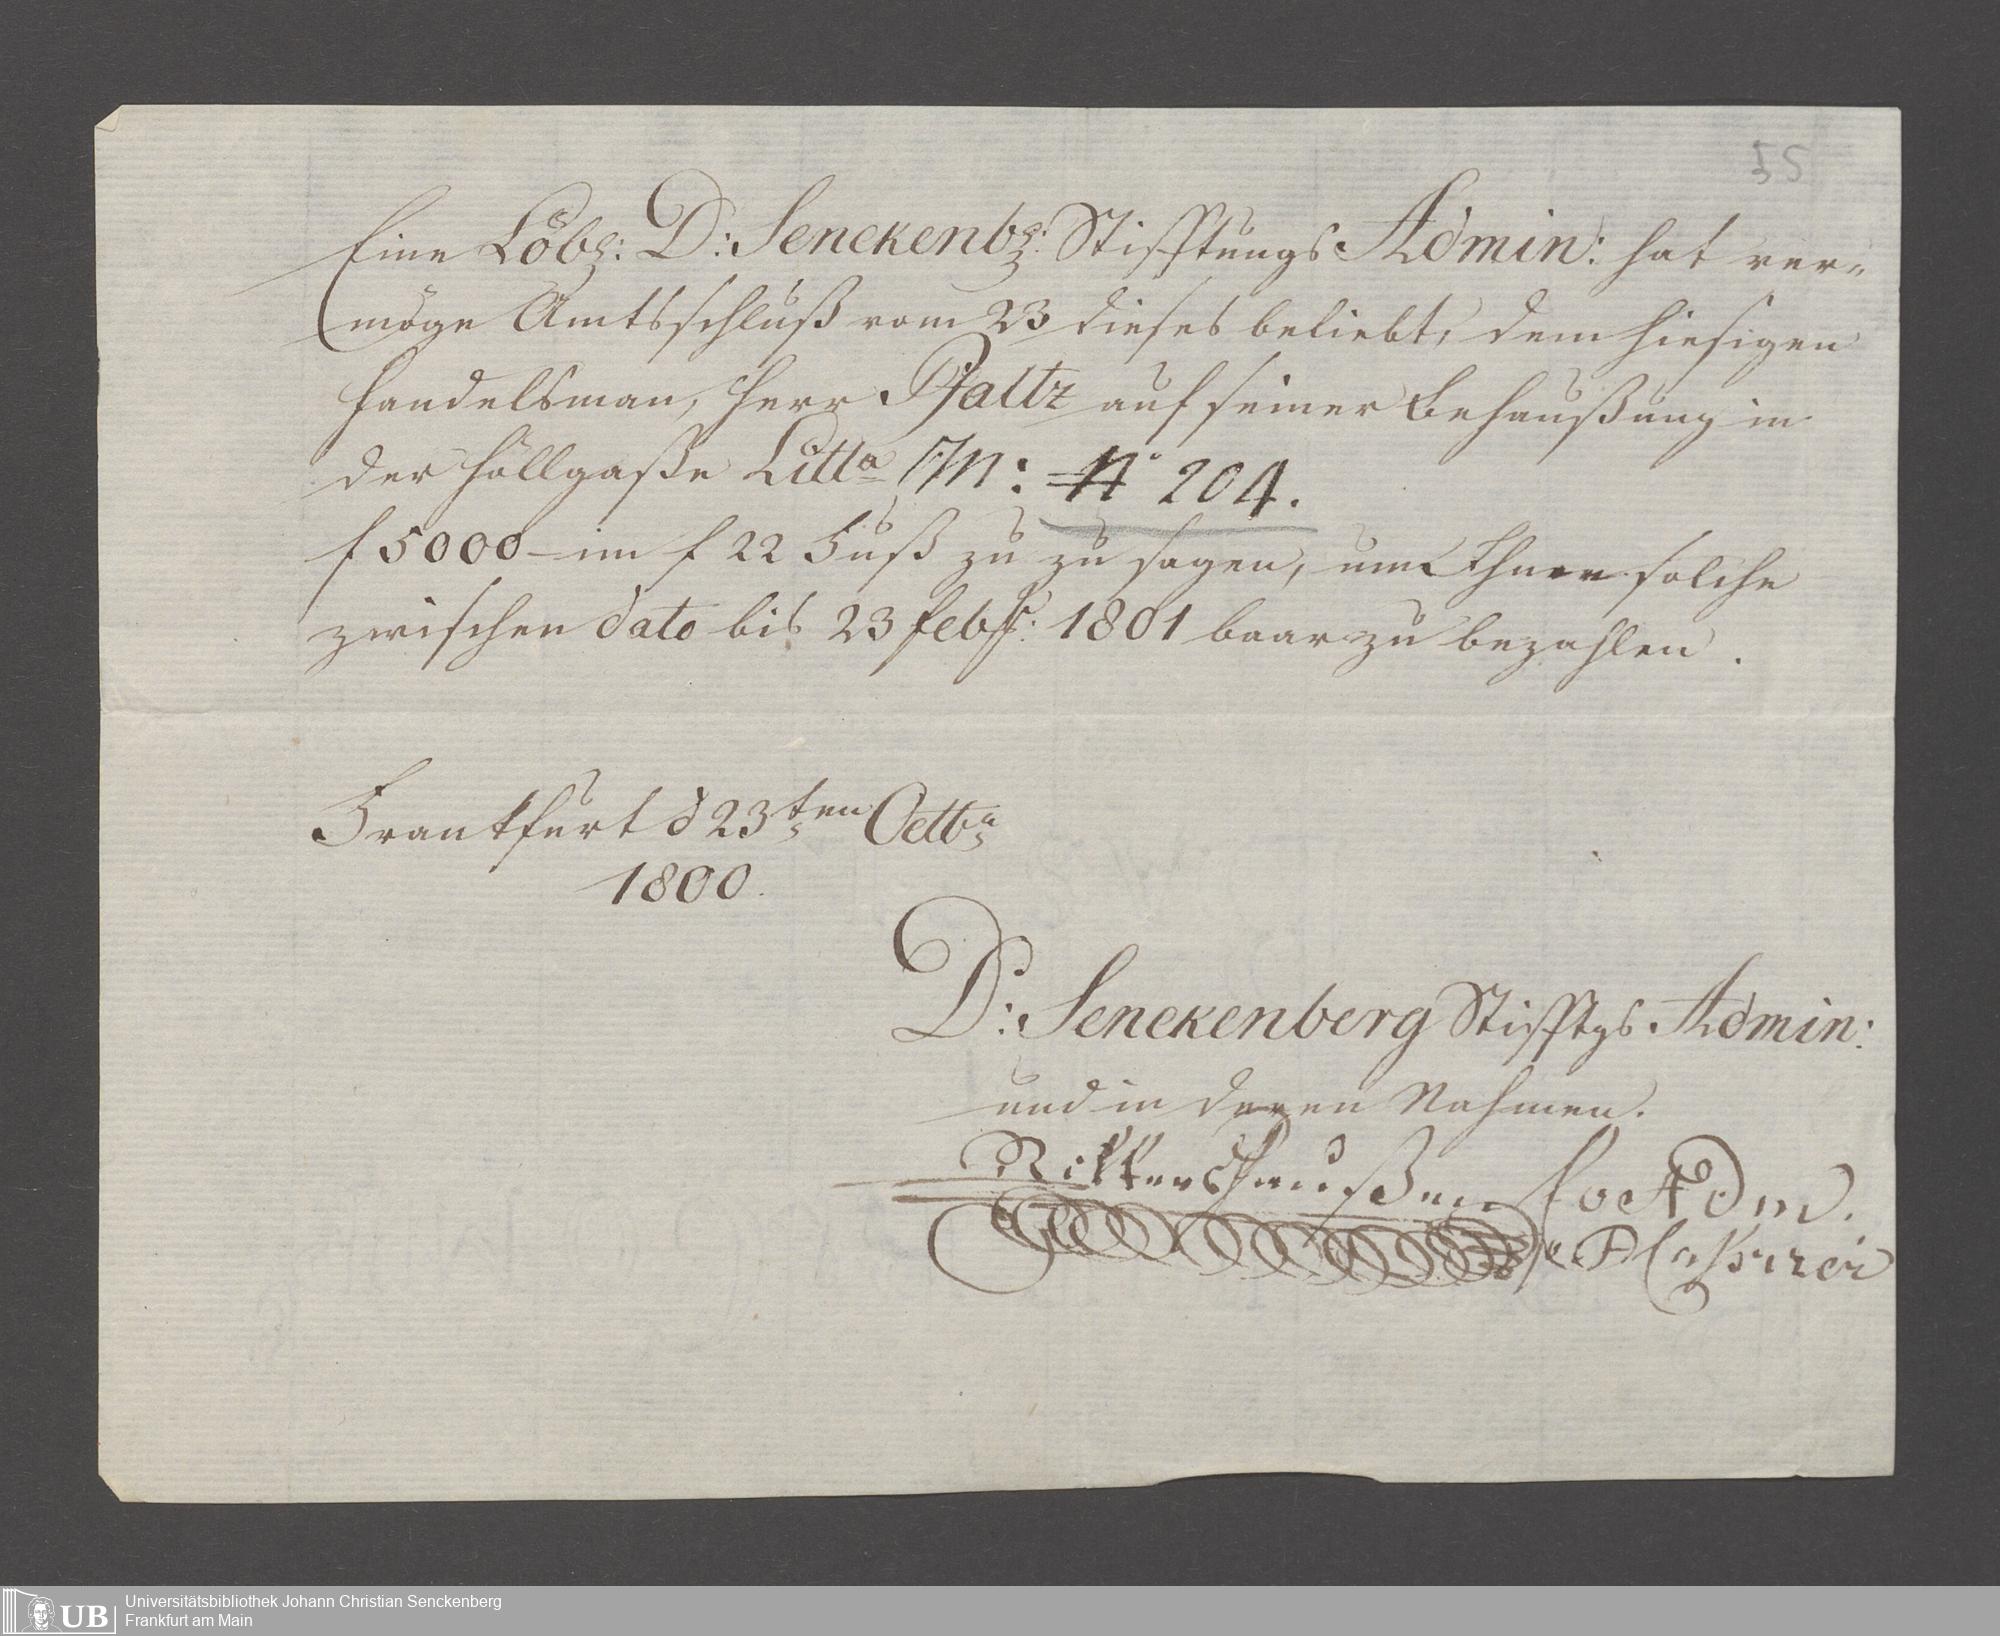 55
Eine Löbl: D: Senckenbg: Stifftungs Admin: hat ver-
möge Amtsschluß vom 23 dieses beliebt, dem hiesigen
Handelsman, Herr Pfaltz auf seiner Behaußung in
der Höllgaße Litta M: No 204.
f 5000 – im f 22 Fuß zu zu sagen, um Ihnen solche
zwischen dato bis 23 Febr: 1801 baar zu bezahlen.
Frankfurt d 23ten Octbr
1800.
D: Senckenberg Stifftgs Admin:
und in deren Nahmen.
Rittershaußen Co Adm.
Universitätsbibliothek Johann Christian Senckenberg
Frankfurt am Main
UB